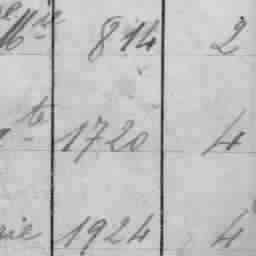 Mie 814 2
te 1720 4
nie 1924 4